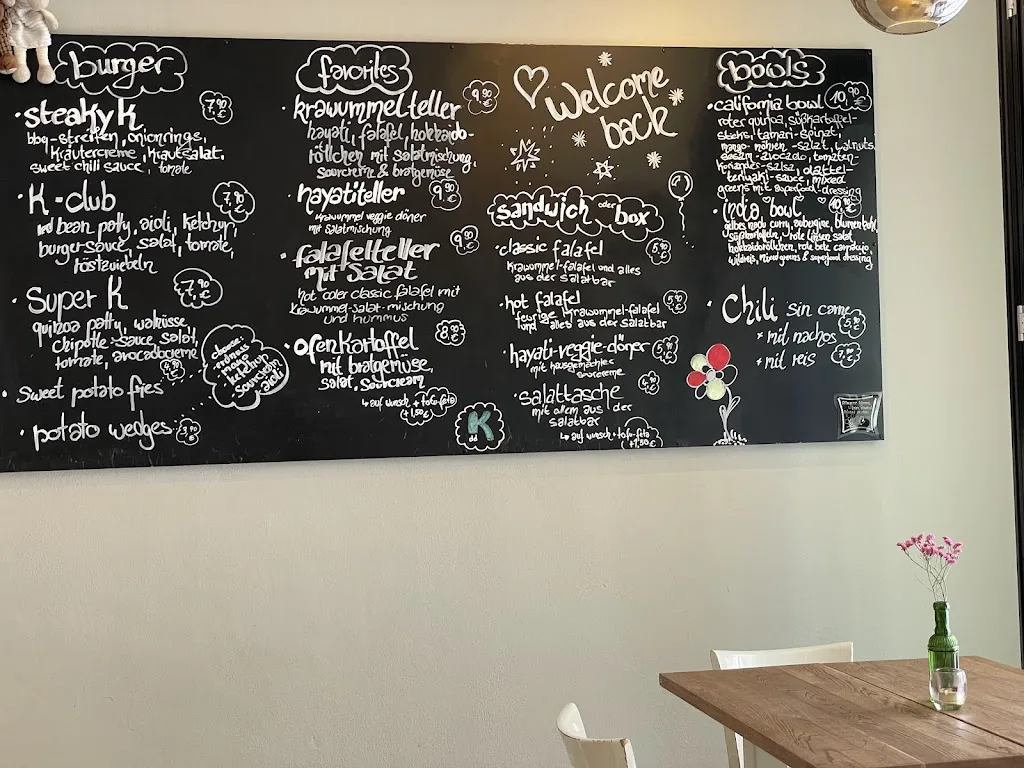 burger
· steaky K 7,90 €
bbq-streifen, onionrings,
kräutercreme, krautsalat,
sweet chili sauce, tomate
· K-club 7,90 €
red bean patty, aioli, ketchup,
burger-sauce, salat, tomate,
röstzwiebeln
· Super K 7,90 €
quinoa patty, walnüsse,
chipotle-sauce, salat,
tomate, avocadocreme
· sweet potato fries
· potato wedges
choose:
mayo
ketchup
sourcream
aioli
favorites
· krawummelteller 9,90 €
hayati, falafel, hokkaido-
röllchen mit salatmischung,
sourcreme & bratgemüse
· hayatiteller 9,90 €
krawummel veggie döner
mit salatmischung
· falafelteller
mit Salat 9,20 €
hot oder classic falafel mit
krawummel-salat-mischung
und hummus
· ofenkartoffel 8,90 €
mit bratgemüse,
salat, sourcream
↳ auf wunsch + tofu-feta
(+1,50 €)
dd K
Welcome
back
sandwich oder box
· classic falafel 5,90 €
krawummel-falafel und alles
aus der salatbar
· hot falafel 5,90 €
feurige krawummel-falafel
und alles aus der salatbar
· hayati-veggie-döner
mit hausgemachter
sourcreme
· salattasche
mit allem aus der
salatbar
↳ auf wunsch + tofu-feta
+1,50 €
bowls
· california bowl 10,90 €
roter quinoa, süßkartoffel-
sticks, tamari-spinat,
mango-möhren-salat, walnuts,
sesam-avocado, tomaten-
koriander-salsa,
teriyaki-sauce, mixed
greens mit superfood-dressing
· india bowl 10,90 €
gelbes curry, aubergine, blumenkohl,
süßkartoffeln, rote linsen salat
hokkaidoröllchen, rote bete carpaccio
wildreis, mixed greens & superfood dressing
· Chili sin carne
* mit nachos
* mit reis